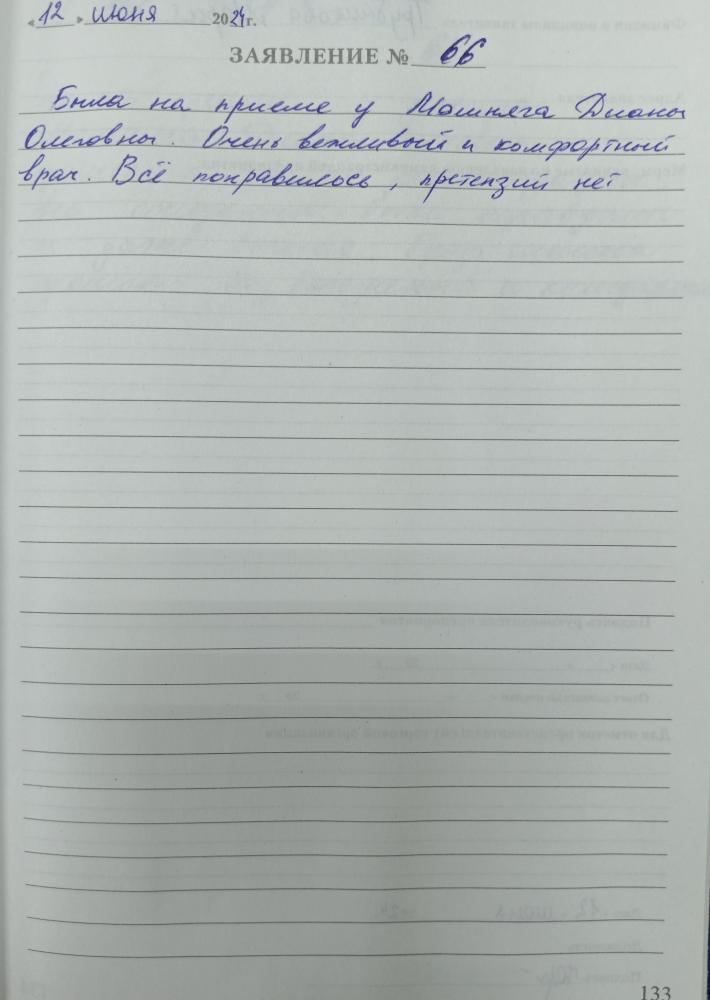 «12» июня 2024 г.
ЗАЯВЛЕНИЕ № 66
Была на приеме у Машняга Дианы
Олеговны. Очень вежливый и комфортный
врач. Всё понравилось, претензий нет
133